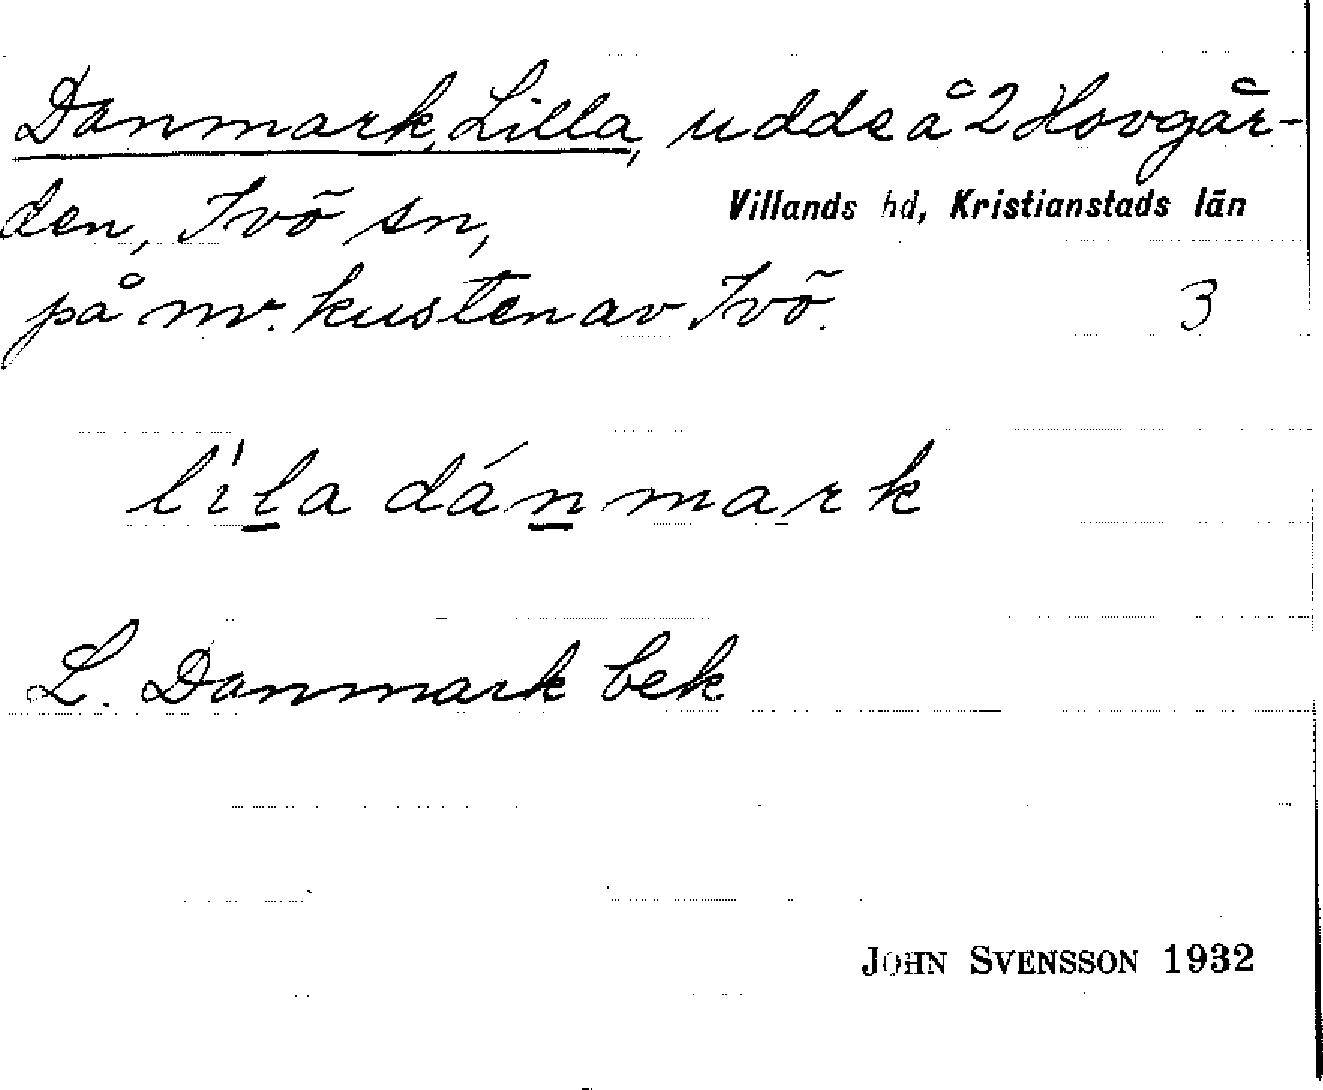 Danmark, Lilla, udde å 2 Hovgår-
den, Ivö sn, Villands hd, Kristianstads län
på nv. kusten av Ivö. 3
lìla dánmark
L. Danmark bek
JOHN SVENSSON 1932